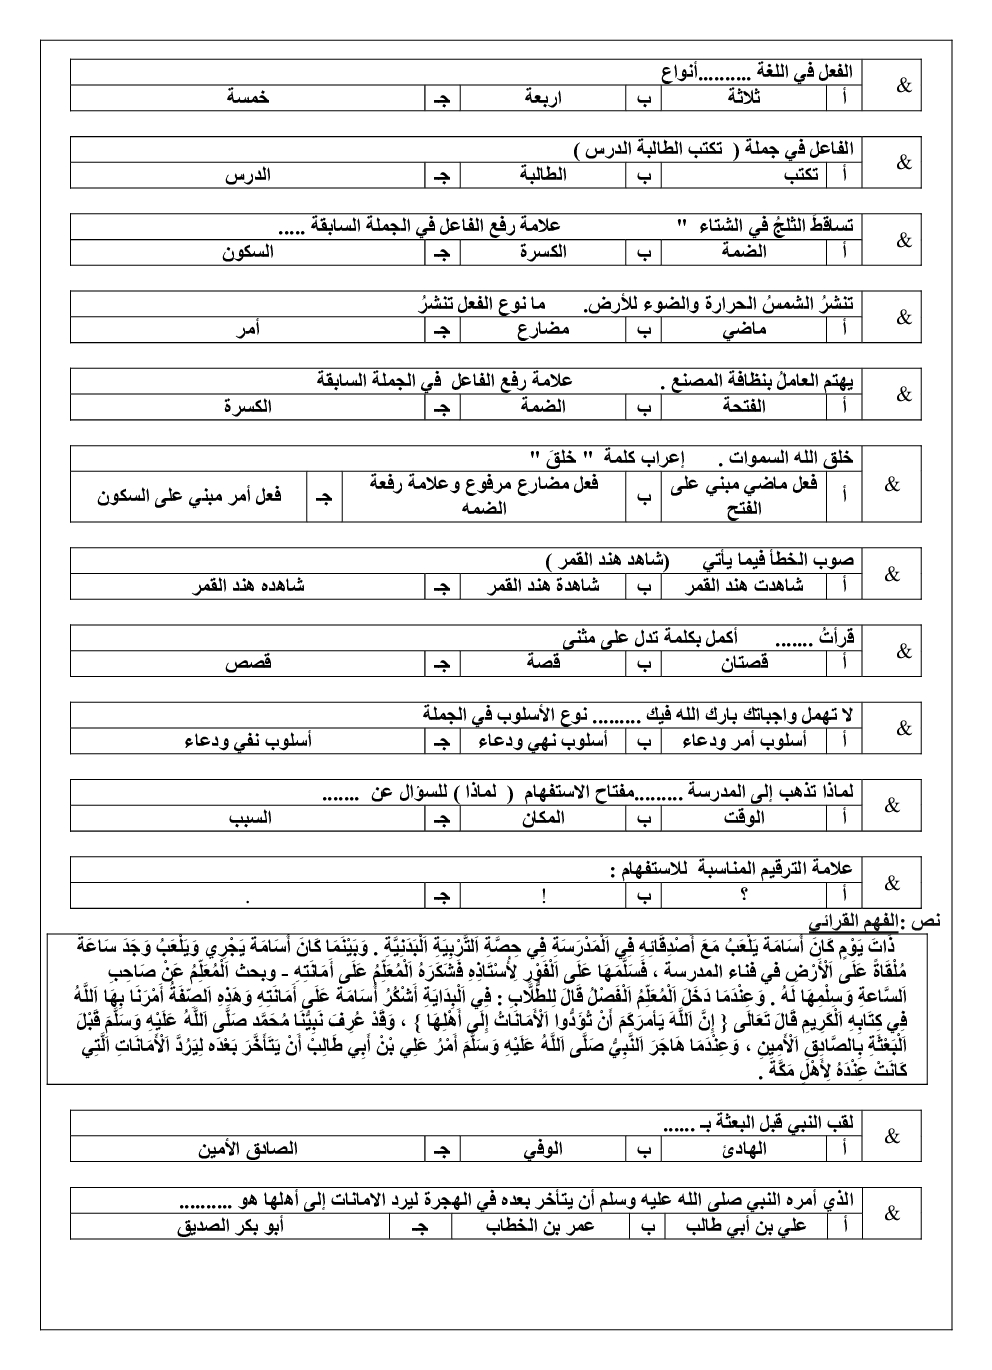 & الفعل في اللغة ..........أنواع
أ ثلاثة ب اربعة جـ خمسة
& الفاعل في جملة ( تكتب الطالبة الدرس )
أ تكتب ب الطالبة جـ الدرس
& تساقطَ الثلجُ في الشتاء " علامة رفع الفاعل في الجملة السابقة .....
أ الضمة ب الكسرة جـ السكون
& تنشرُ الشمسُ الحرارة والضوء للأرض. ما نوع الفعل تنشرُ
أ ماضي ب مضارع جـ أمر
& يهتم العاملُ بنظافة المصنع . علامة رفع الفاعل في الجملة السابقة
أ الفتحة ب الضمة جـ الكسرة
& خلق الله السموات . إعراب كلمة " خلقَ "
أ فعل ماضي مبني على الفتح ب فعل مضارع مرفوع وعلامة رفعة الضمه جـ فعل أمر مبني على السكون
& صوب الخطأ فيما يأتي (شاهد هند القمر )
أ شاهدت هند القمر ب شاهدة هند القمر جـ شاهده هند القمر
& قرأتُ ....... أكمل بكلمة تدل على مثنى
أ قصتان ب قصة جـ قصص
& لا تهمل واجباتك بارك الله فيك ......... نوع الأسلوب في الجملة
أ أسلوب أمر ودعاء ب أسلوب نهي ودعاء جـ أسلوب نفي ودعاء
& لماذا تذهب إلى المدرسة .........مفتاح الاستفهام ( لماذا ) للسؤال عن .......
أ الوقت ب المكان جـ السبب
& علامة الترقيم المناسبة للاستفهام :
أ ؟ ب ! جـ .
نص :الفهم القرائي
ذَاتَ يَوْمٍ كَانَ أُسَامَة يَلْعَبُ مَعَ أَصْدِقَائِهِ فِي اَلْمَدْرَسَةِ فِي حِصَّةِ اَلتَّرْبِيَةِ اَلْبَدَنِيَّةِ . وَبَيْنَمَا كَانَ أُسَامَة يَجْرِي وَيَلْعَبُ وَجَدَ سَاعَة
مُلْقَاةً عَلَى اَلْأَرْضِ في فناء المدرسة ، فَسَلَّمَهَا عَلَى اَلْفَوْرِ لِأُسْتَاذِهِ فَشَكَرَهُ اَلْمُعَلِّمُ عَلَى أَمَانَتِهِ - وبحث اَلْمُعَلِّمُ عَنْ صَاحِبِ
اَلسَّاعةِ وَسلْمِهَا لَهُ . وَعِنْدَمَا دَخَلَ اَلْمُعَلِّمُ اَلْفَصْلُ قَالَ لِلطُّلَّابِ : فِي اَلْبِدَايَةِ أَشْكُرُ أُسَامَةَ عَلَى أَمَانَتِهِ وَهَذِهِ اَلصِّفَةُ أَمْرَنَا بِهَا اَللَّهُ
فِي كِتَابِهِ اَلْكَرِيمِ قَالَ تَعَالَى { إِنَّ اَللَّهَ يَأمرَكَمَ أَنْ تُؤَدُّوا اَلْأَمَانَاتُ إِلَى أَهْلِهَا } ، وَقَدْ عُرِفَ نَبِيُّنَا مُحَمَّد صَلَّى اَللَّهُ عَلَيْهِ وَسَلَّمَ قَبْلَ
اَلْبَعْثَةِ بِالصَّادِقِ اَلْأَمِينِ ، وَعِنْدَمَا هَاجَرَ اَلنَّبِيُّ صَلَّى اَللَّهُ عَلَيْهِ وَسَلَّمَ أَمْرُ عَلِي بْنْ أَبِي طَالِبْ أَنْ يَتَأَخَّرَ بَعْدَه لِيَرُدَّ اَلْأَمَانَاتِ اَلَّتِي
كَانَتْ عِنْدَهُ لِأَهْلِ مَكَّةَ .
& لقب النبي قبل البعثة بـ ......
أ الهادئ ب الوفي جـ الصادق الأمين
& الذي أمره النبي صلى الله عليه وسلم أن يتأخر بعده في الهجرة ليرد الامانات إلى أهلها هو ..........
أ علي بن أبي طالب ب عمر بن الخطاب جـ أبو بكر الصديق